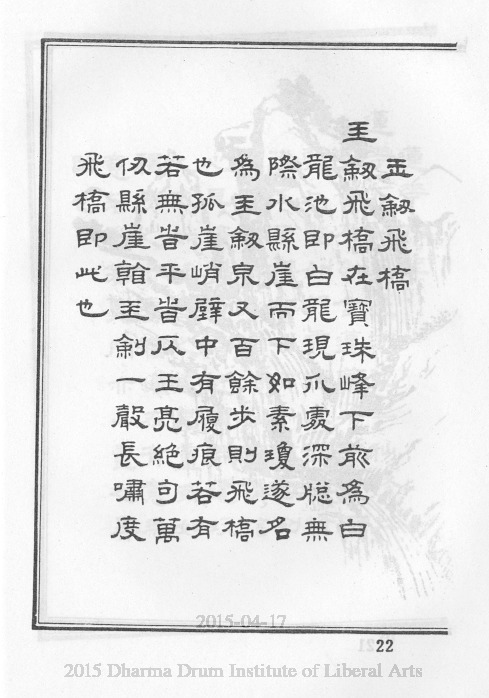 玉劔飛橋
玉劔飛橋在寶珠峰下前為白
龍池即白龍現爪處深無
際水縣崖而下如素瓊遂名
為玉劔泉又百餘步則飛橋
也孤崖峭壁中有履痕若有
若無皆平皆仄王亮絕句萬
仭縣崖翰玉劍一聲長嘯度
飛橋即此也
2015-04-17
22
2015 Dharma Drum Institute of Liberal Arts